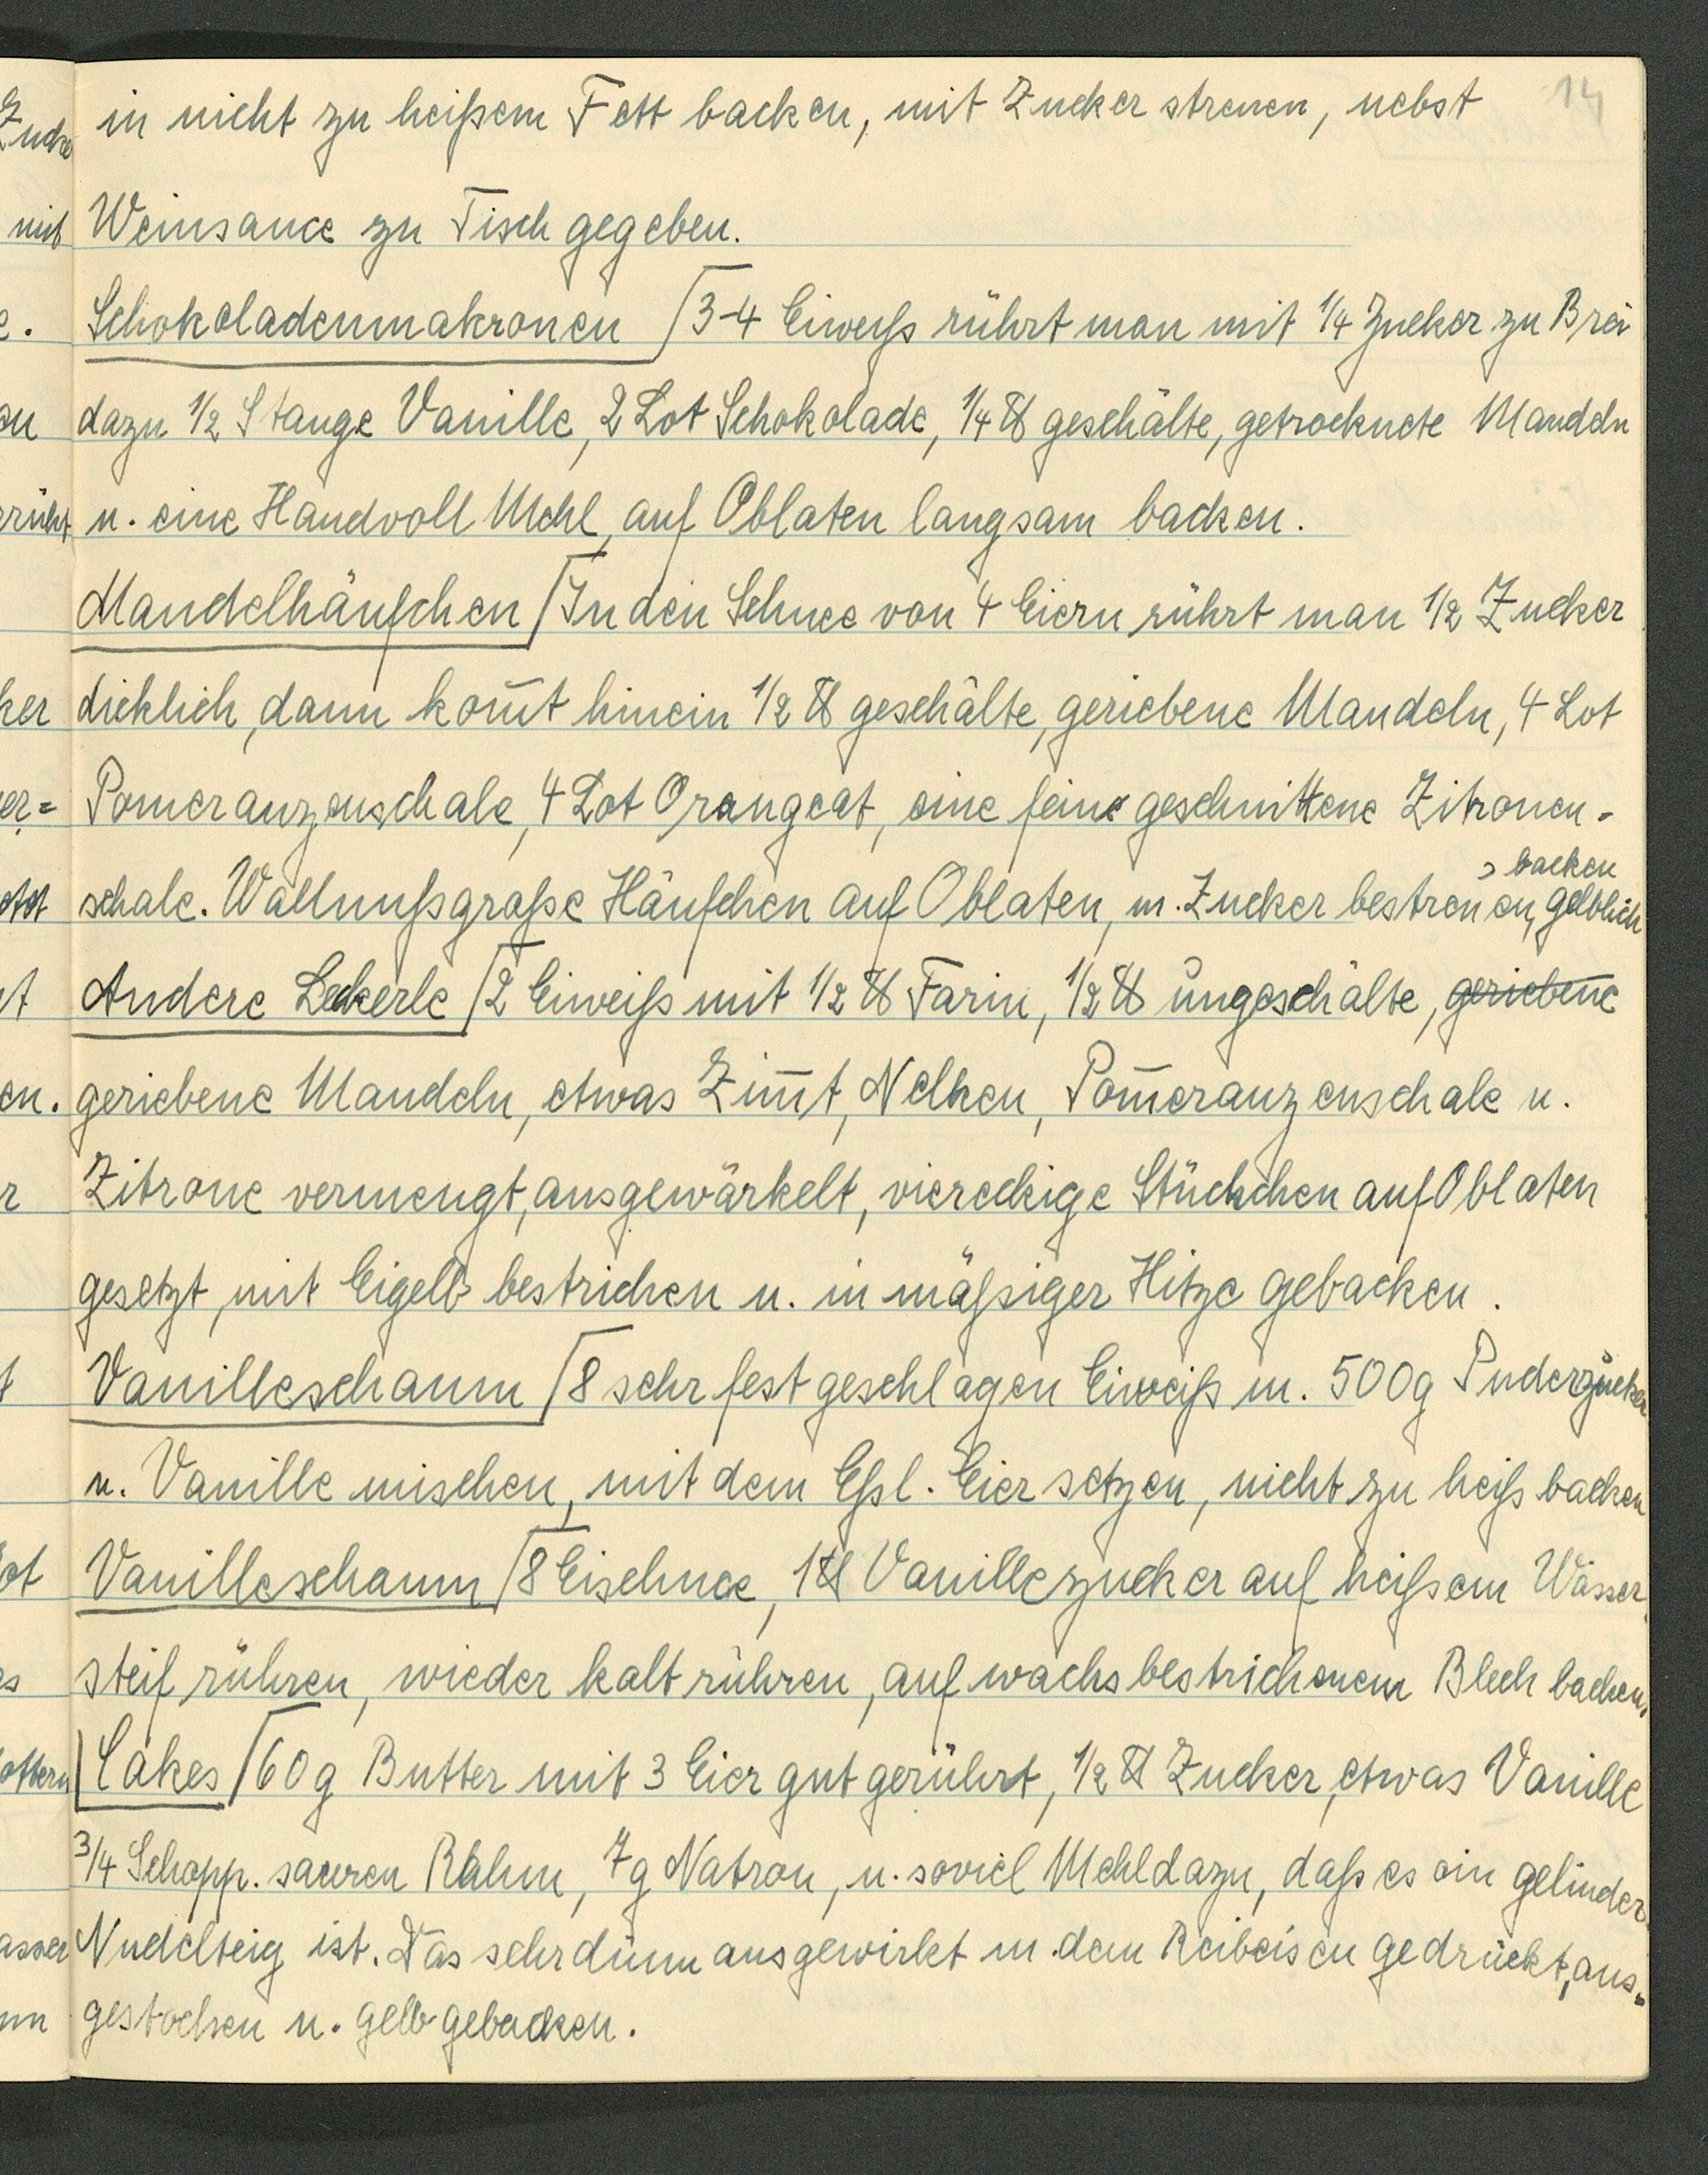 14
in nicht zu heißem Fett backen, mit Zucker streuen, nebst
Weinsauce zu Tisch gegeben.
Schokoladenmakronen 3-4 Eiweiß rührt man mit 1/4 Zucker zu Brei
dazu 1/2 Stange Vanille, 2 Lot Schokolade, 1/4 ℔ geschälte, getrocknete Mandeln
u. eine Handvoll Mehl, auf Oblaten langsam backen.
Mandelhäufchen In den Schnee von 4 Eiern rührt man 1/2 Zucker
dicklich, dann kom̄t hinein 1/2 ℔ geschälte, geriebene Mandeln, 4 Lot
Pomeranzenschale, 4 Lot Orangeat, eine feine geschnittene Zitronen-
schale. Wallnußgroße Häufchen auf Oblaten, m. Zucker bestreuen, gelblich
backen
Andere Leckerle 2 Eiweiß mit 1/2 ℔ Farin, 1/2 ℔ ungeschälte, geriebene
geriebene Mandeln, etwas Zim̄t, Nelken, Pom̄eranzenschale u.
Zitrone vermengt, ausgewärkelt, viereckige Stückchen auf Oblaten
gesetzt, mit Eigelb bestrichen u. in mäßiger Hitze gebacken.
Vanilleschaum 8 sehr fest geschlagen Eiweiß m. 500g Puderzucker
u. Vanille mischen, mit dem Eßl. Eier setzen, nicht zu heiß backen
Vanilleschaum 8 Eischnee, 1 ℔ Vanillezucker auf heißem Wasser
steif rühren, wieder kalt rühren, auf wachsbestrichenem Blech backen.
Cakes 60g Butter mit 3 Eier gut gerührt, 1/2 ℔ Zucker, etwas Vanille
3/4 Schopp. sauren Rahm, 7g Natron, u. soviel Mehl dazu, daß es ein gelinder
Nudelteig ist. Das sehr dünn ausgewirkt m. dem Reibeisen gedrückt, aus-
gestochen u. gelb gebacken.